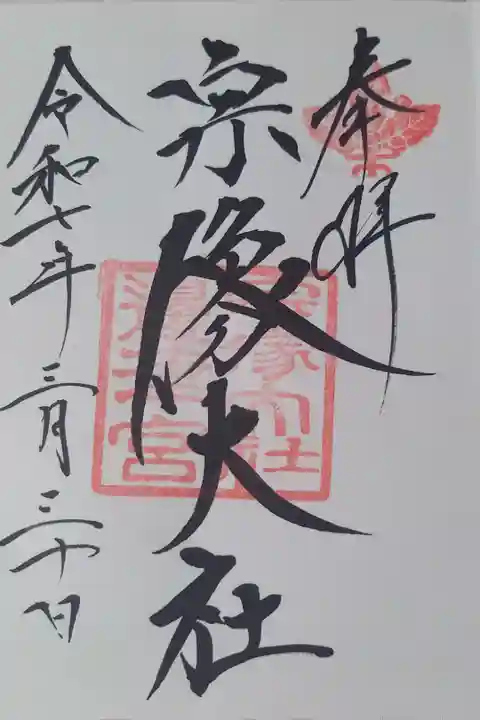 奉拝
宗像大社
令和七年三月三十日